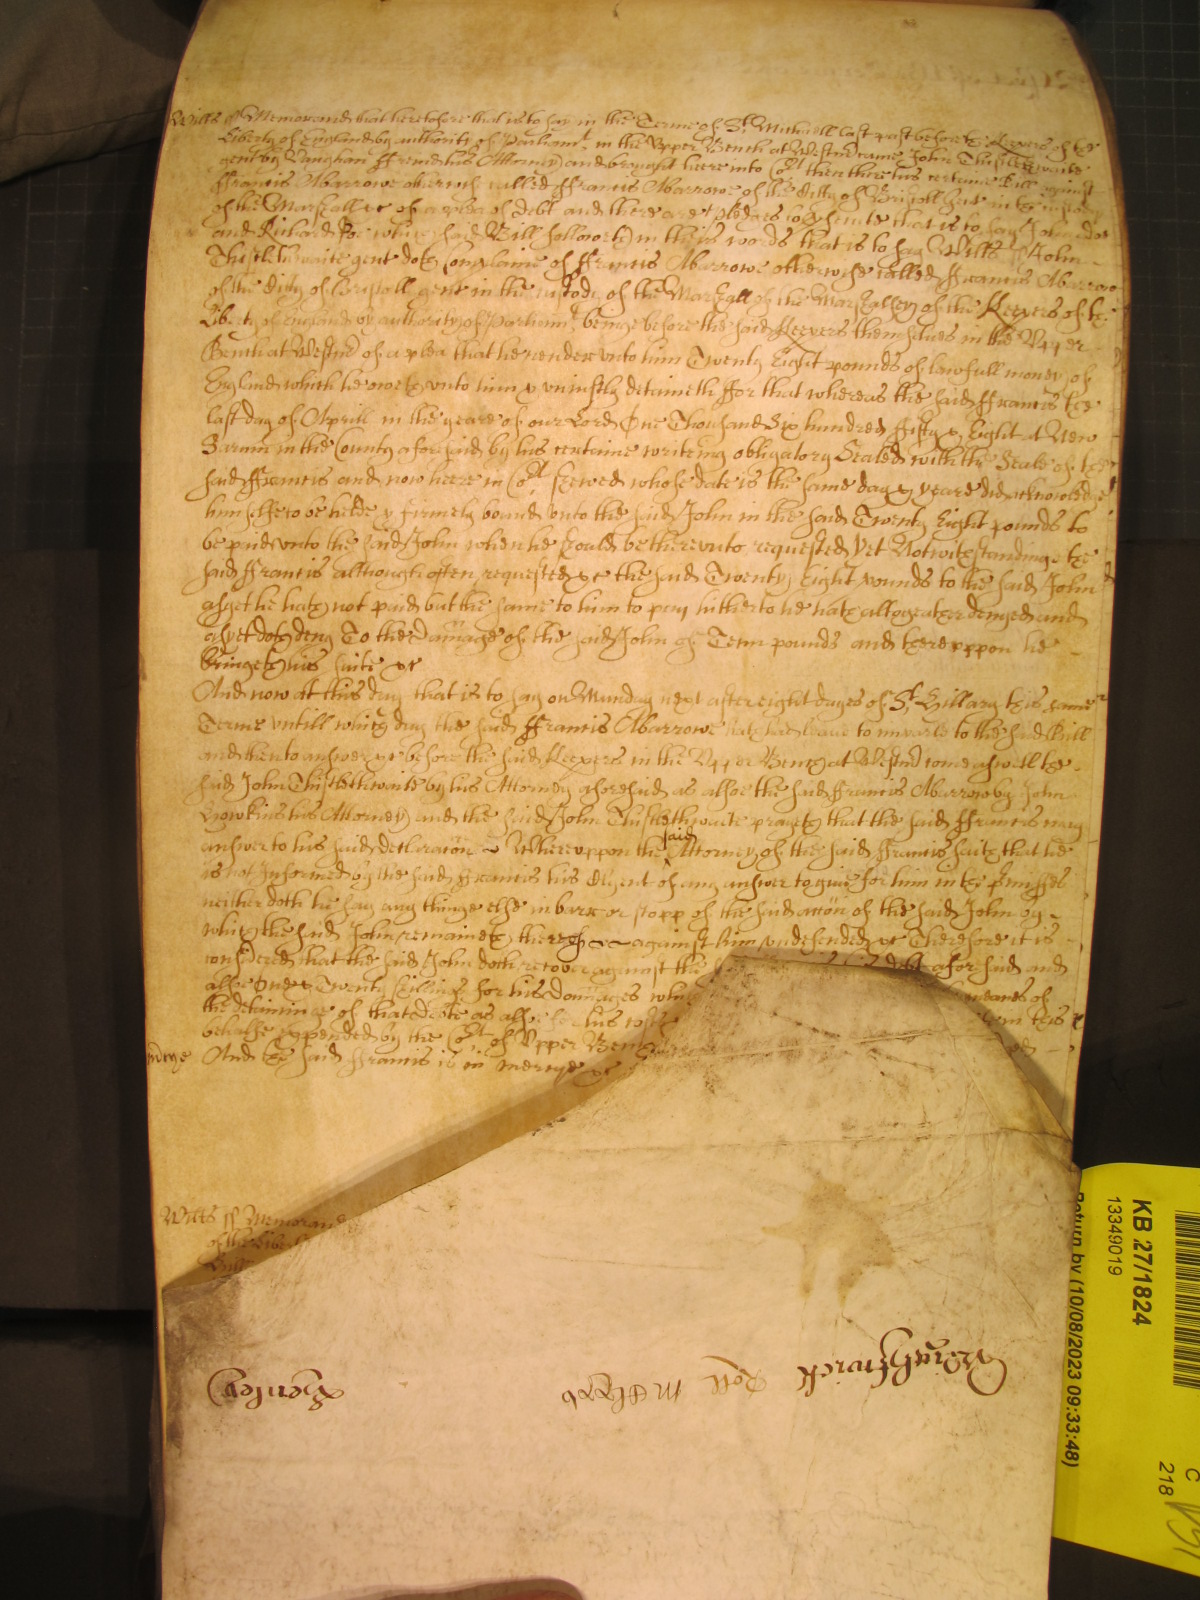 Wilts ss Memorand that heretofore that is to say in the Terme of St Michaell last past before the Keepers of the
Liberty of England by authority of Parliamt in the Upper Bench at Westmr came John Thistlethwaite
gent by Vaughan his Attorney and brought heere into Cort then there his certaine Bill against
ffrancis Abarrowe otherwise called ffrancis Abarrowe of the Citty of Bristoll gent in the custody
of the Marshall &c of a plea of debt and there are pledges to prosecute that is to say John doe
and Richard Roe which said Bill followeth in theis words that is to say Wilts ss John
Thistlethwaite gent doth complaine of ffrancis Abarrowe otherwise called ffrancis Abarrow
of the Citty of Bristoll gent in the custody of the Marshall of the Marshallsey of the Keepers of the
Liberty of England by authority of Parliamt beinge before the said Keepers themselves in the Upper
Bench at Westmr of a plea that he render unto him Twenty Eight pounds of lawfull money of
England which he oweth unto him & uniustly detaineth ffor that whereas the said ffrancis the
last day of Aprill in the yeare of our Lord One Thousand Six hundred ffifty & Eight at New
Sarum in the County aforesaid by his certaine writeing obligatory Sealed with the Seale of the
said ffrancis and now heere in Cort shewed whose date is the same day & yeare did acknowledge
himselfe to be helde & firmely bound unto the said John in the said Twenty Eight pounds to
be paid unto the said John when he should be thereunto requested Yet Notwithstandinge the
said ffrancis although often requested &c the said Twenty Eight pounds to the said John
as yet he hath not paid but the same to him to pay hitherto he hath altogeather denyed and
as yet doth deny To the Damage of the said John of Tenn pounds and thereuppon he
bringeth his suite &c
And now at this day that is to say on Munday next after eight dayes of St Hillary this same
Terme untill which day the said ffrancis Abarrowe hath had leave to imparle to the said Bill
and then to answer &c before the said Keepers in the Upper Bench at Westmr come aswell the
said John Thistlethwaite by his Attorney aforesaid as alsoe the said ffrancis Abarrow by John
Hawkins his Attorney and the said John Thistlethwaite prayeth that the said ffrancis may
answer to his said declaracon &c Whereuppon the said Attorney of the said ffrancis saith that he
is not Informed by the said ffrancis his Clyent of any answer to give for him in the prmisses
neither doth he say any thinge else in barr or stopp of the said accon of the said John by
which the said John remaineth there against him undefended &c Therefore it is
considered that the said John doth recover against the debt aforesaid and
alsoe Twenty shillings for his Damages which meanes of
the deteininge of that debte as alsoe for his costs in this
behalfe expended by the Cort of Upper Bench
mercye And the said ffrancis is in mercye &c
Wilts ss Memorand
of the Libert
Bill
Rott